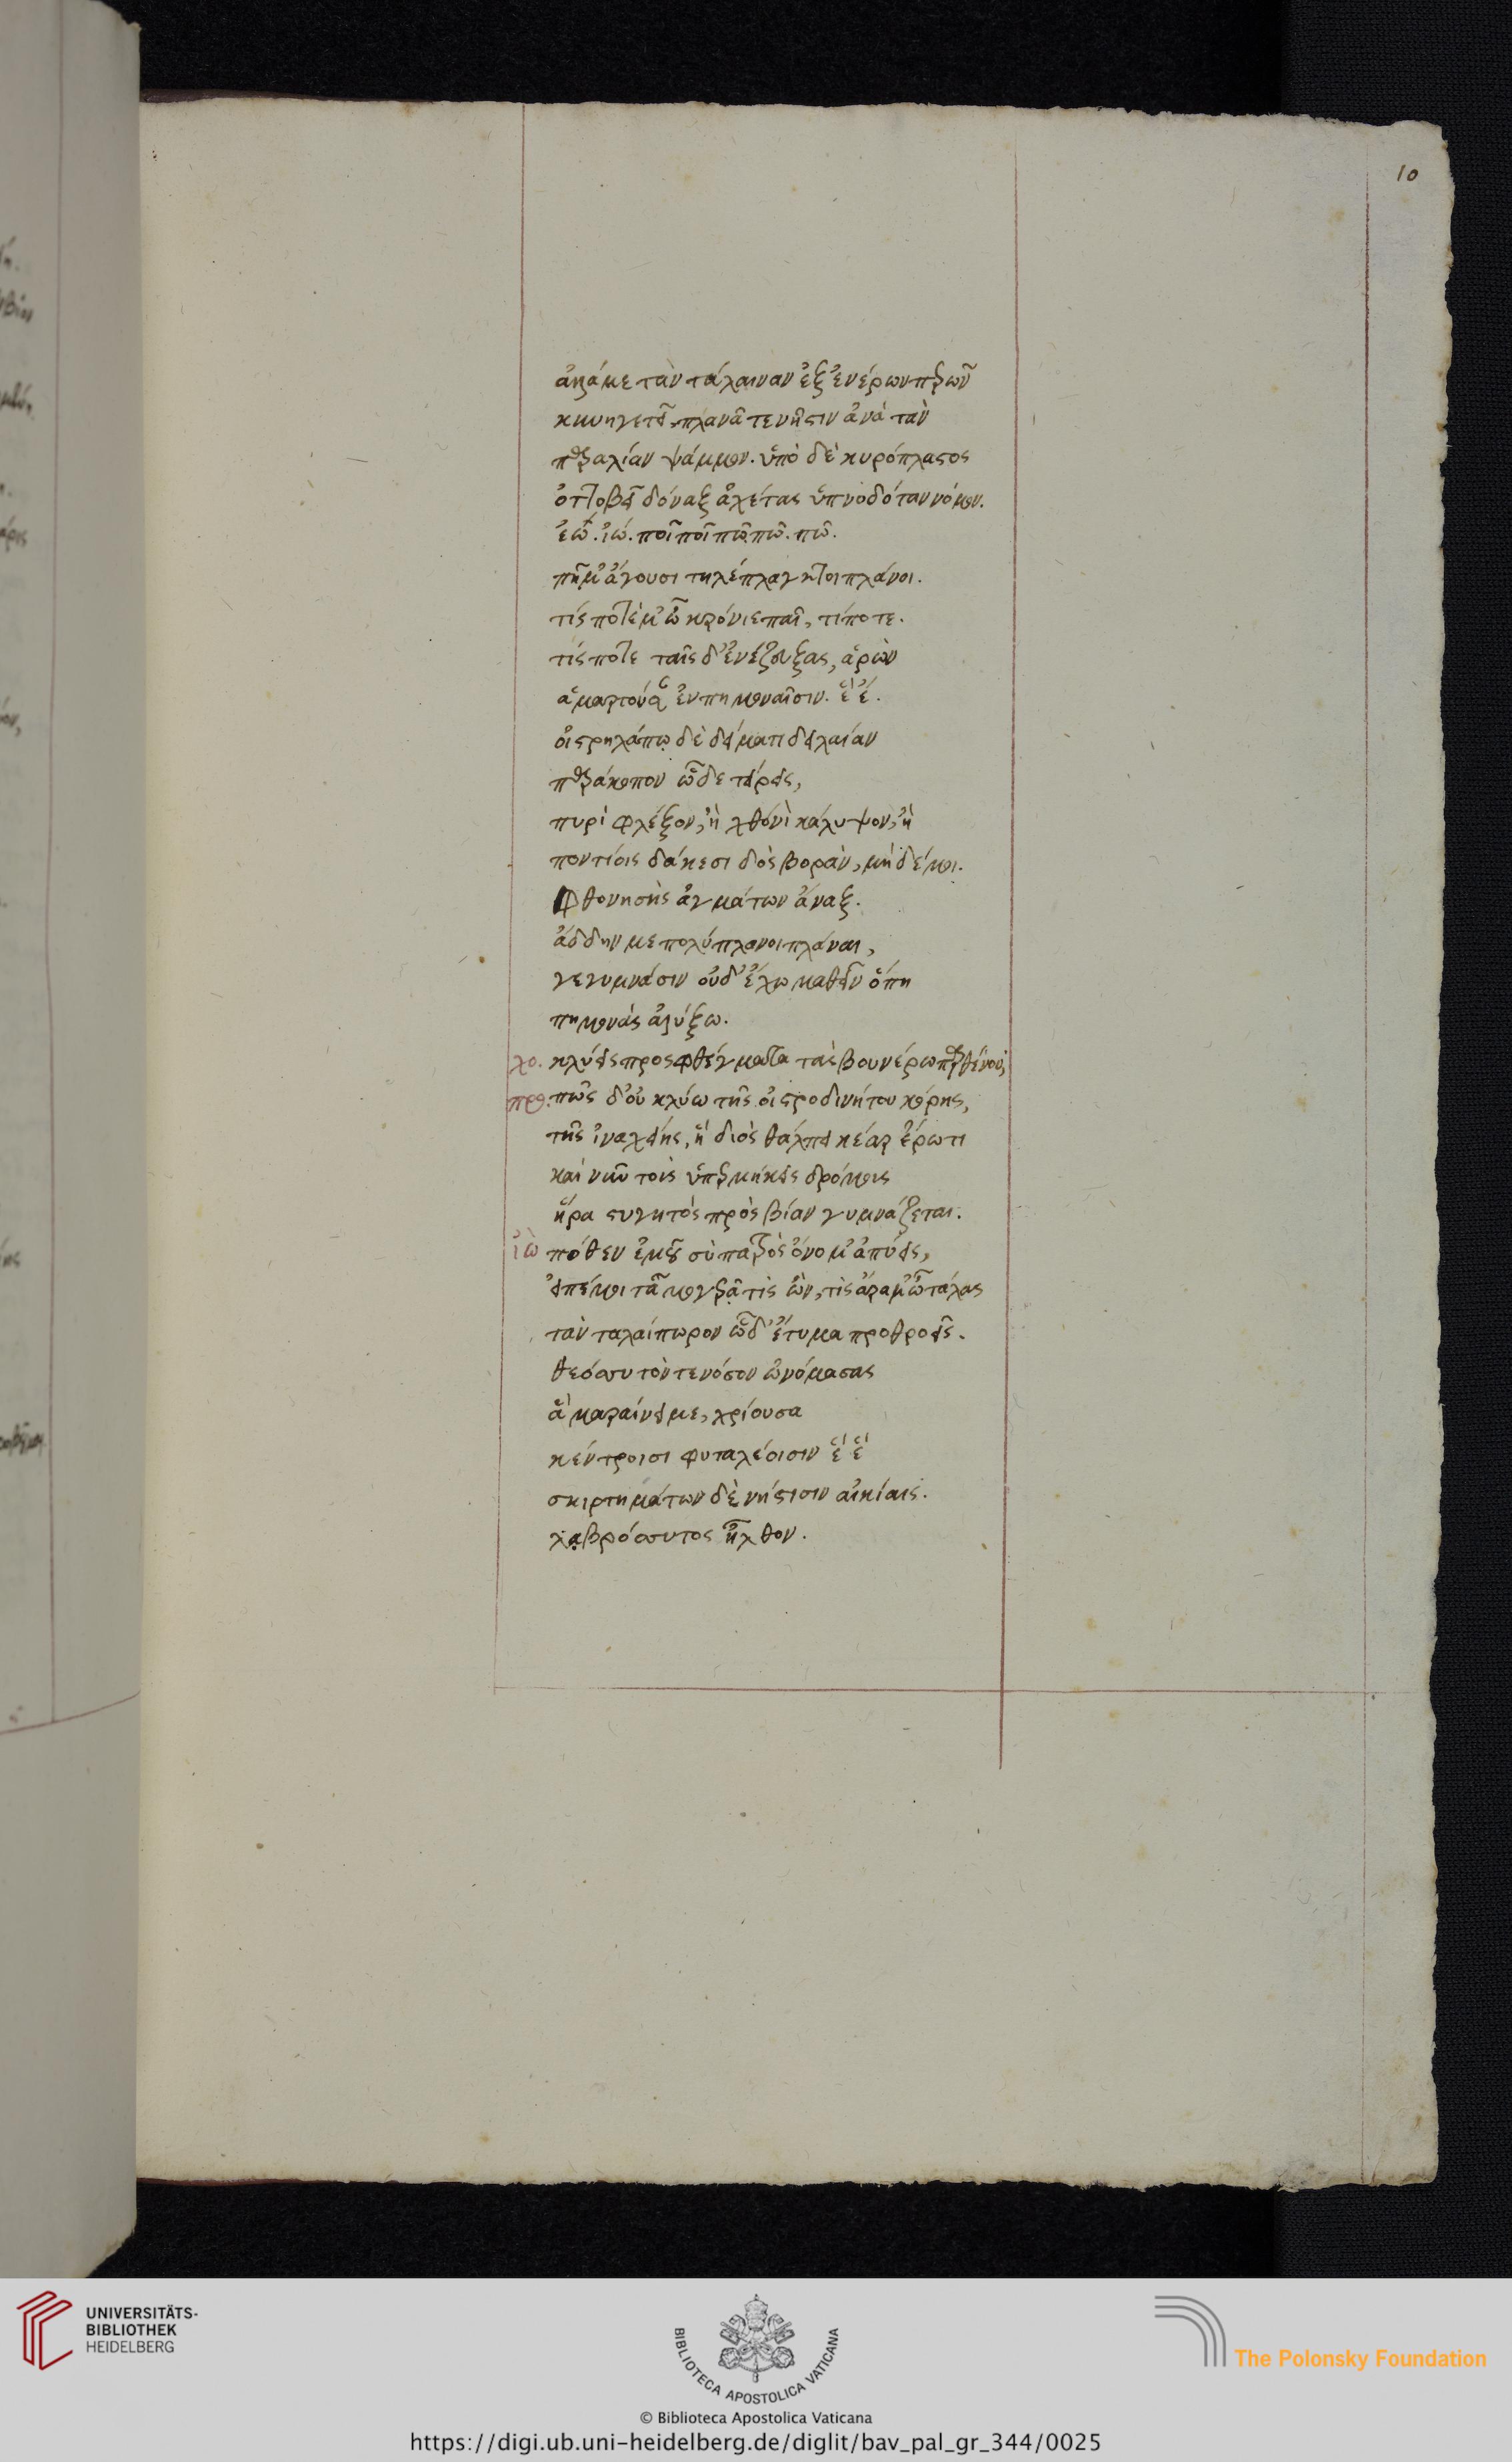 10
ἀλλά με τὰν τάλαιναν ἐξ ἐνέρων περῶν
κυνηγετεῖ, πλανᾶ τε νῆστιν ἀνὰ τὰν
παραλίαν ψάμμον. ὑπὸ δὲ κηρόπλαστος
ὀττοβεῖ δόναξ ἀχέτας ὑπνοδόταν νόμον.
ἰὼ. ἰώ. ποῖ ποῖ πῶ πῶ. πῶ.
πῆ μ' ἄγουσι τηλέπλαγκτοι πλάνοι.
τίς ποτὲ μ' ὦ κρόνιε παῖ, τί ποτε.
τίς ποτε ταῖς δ' ἐνέζευξας, εὑρὼν
ἁμαρτοῦσαν ἐν πημοναῖσιν. ἒ ἔ.
οἰστρηλάτω δὲ δείματι δειλαίαν
παράκοπον ὧδε τείρεις,
πυρὶ φλέξον, ἢ χθονὶ κάλυψον, ἢ
ποντίοις δάκεσι δὸς βορὰν, μὴ δέ μοι.
φθονήσῃς εὐγμάτων ἄναξ.
ἄδδην με πολύπλανοι πλάναι,
γεγυμνάσιν οὐδ' ἔχω μαθεῖν ὅπη
πημονὰς ἀλύξω.
χο. κλύεις προσφθέγματα τᾶς βουκέρω παρθένου;
προ. πῶς δ' οὐ κλύω τῆς οἰστροδινήτου κόρης,
τῆς ἰναχείης, ἣ διὸς θάλπει κέαρ ἔρωτι
καὶ νῦν τοὺς ὑπερμήκεις δρόμους
ἥρα στυγητὸς πρὸς βίαν γυμνάζεται.
ἰὼ πόθεν ἐμοῦ σὺ πατρὸς ὄνομ' ἀπύεις,
εἰπέ μοι τᾶ μογερᾶ τίς ὢν, τίς ἄρα μ' ὦ τάλας
τὰν ταλαίπωρον ὧδ' ἔτυμα προθροεῖς.
θεόσυτόν τε νόσον ὠνόμασας
ἃ μαραίνει με, χρίουσα
κέντροισι φυταλέοισιν ἒ ἒ
σκιρτημάτων δὲ νήστισιν αἰκίαις.
λαβρόσυτος ἦλθον.
UNIVERSITÄTS-
BIBLIOTHEK
HEIDELBERG
BIBLIOTECA APOSTOLICA VATICANA
The Polonsky Foundation
© Biblioteca Apostolica Vaticana
https://digi.ub.uni-heidelberg.de/diglit/bav_pal_gr_344/0025